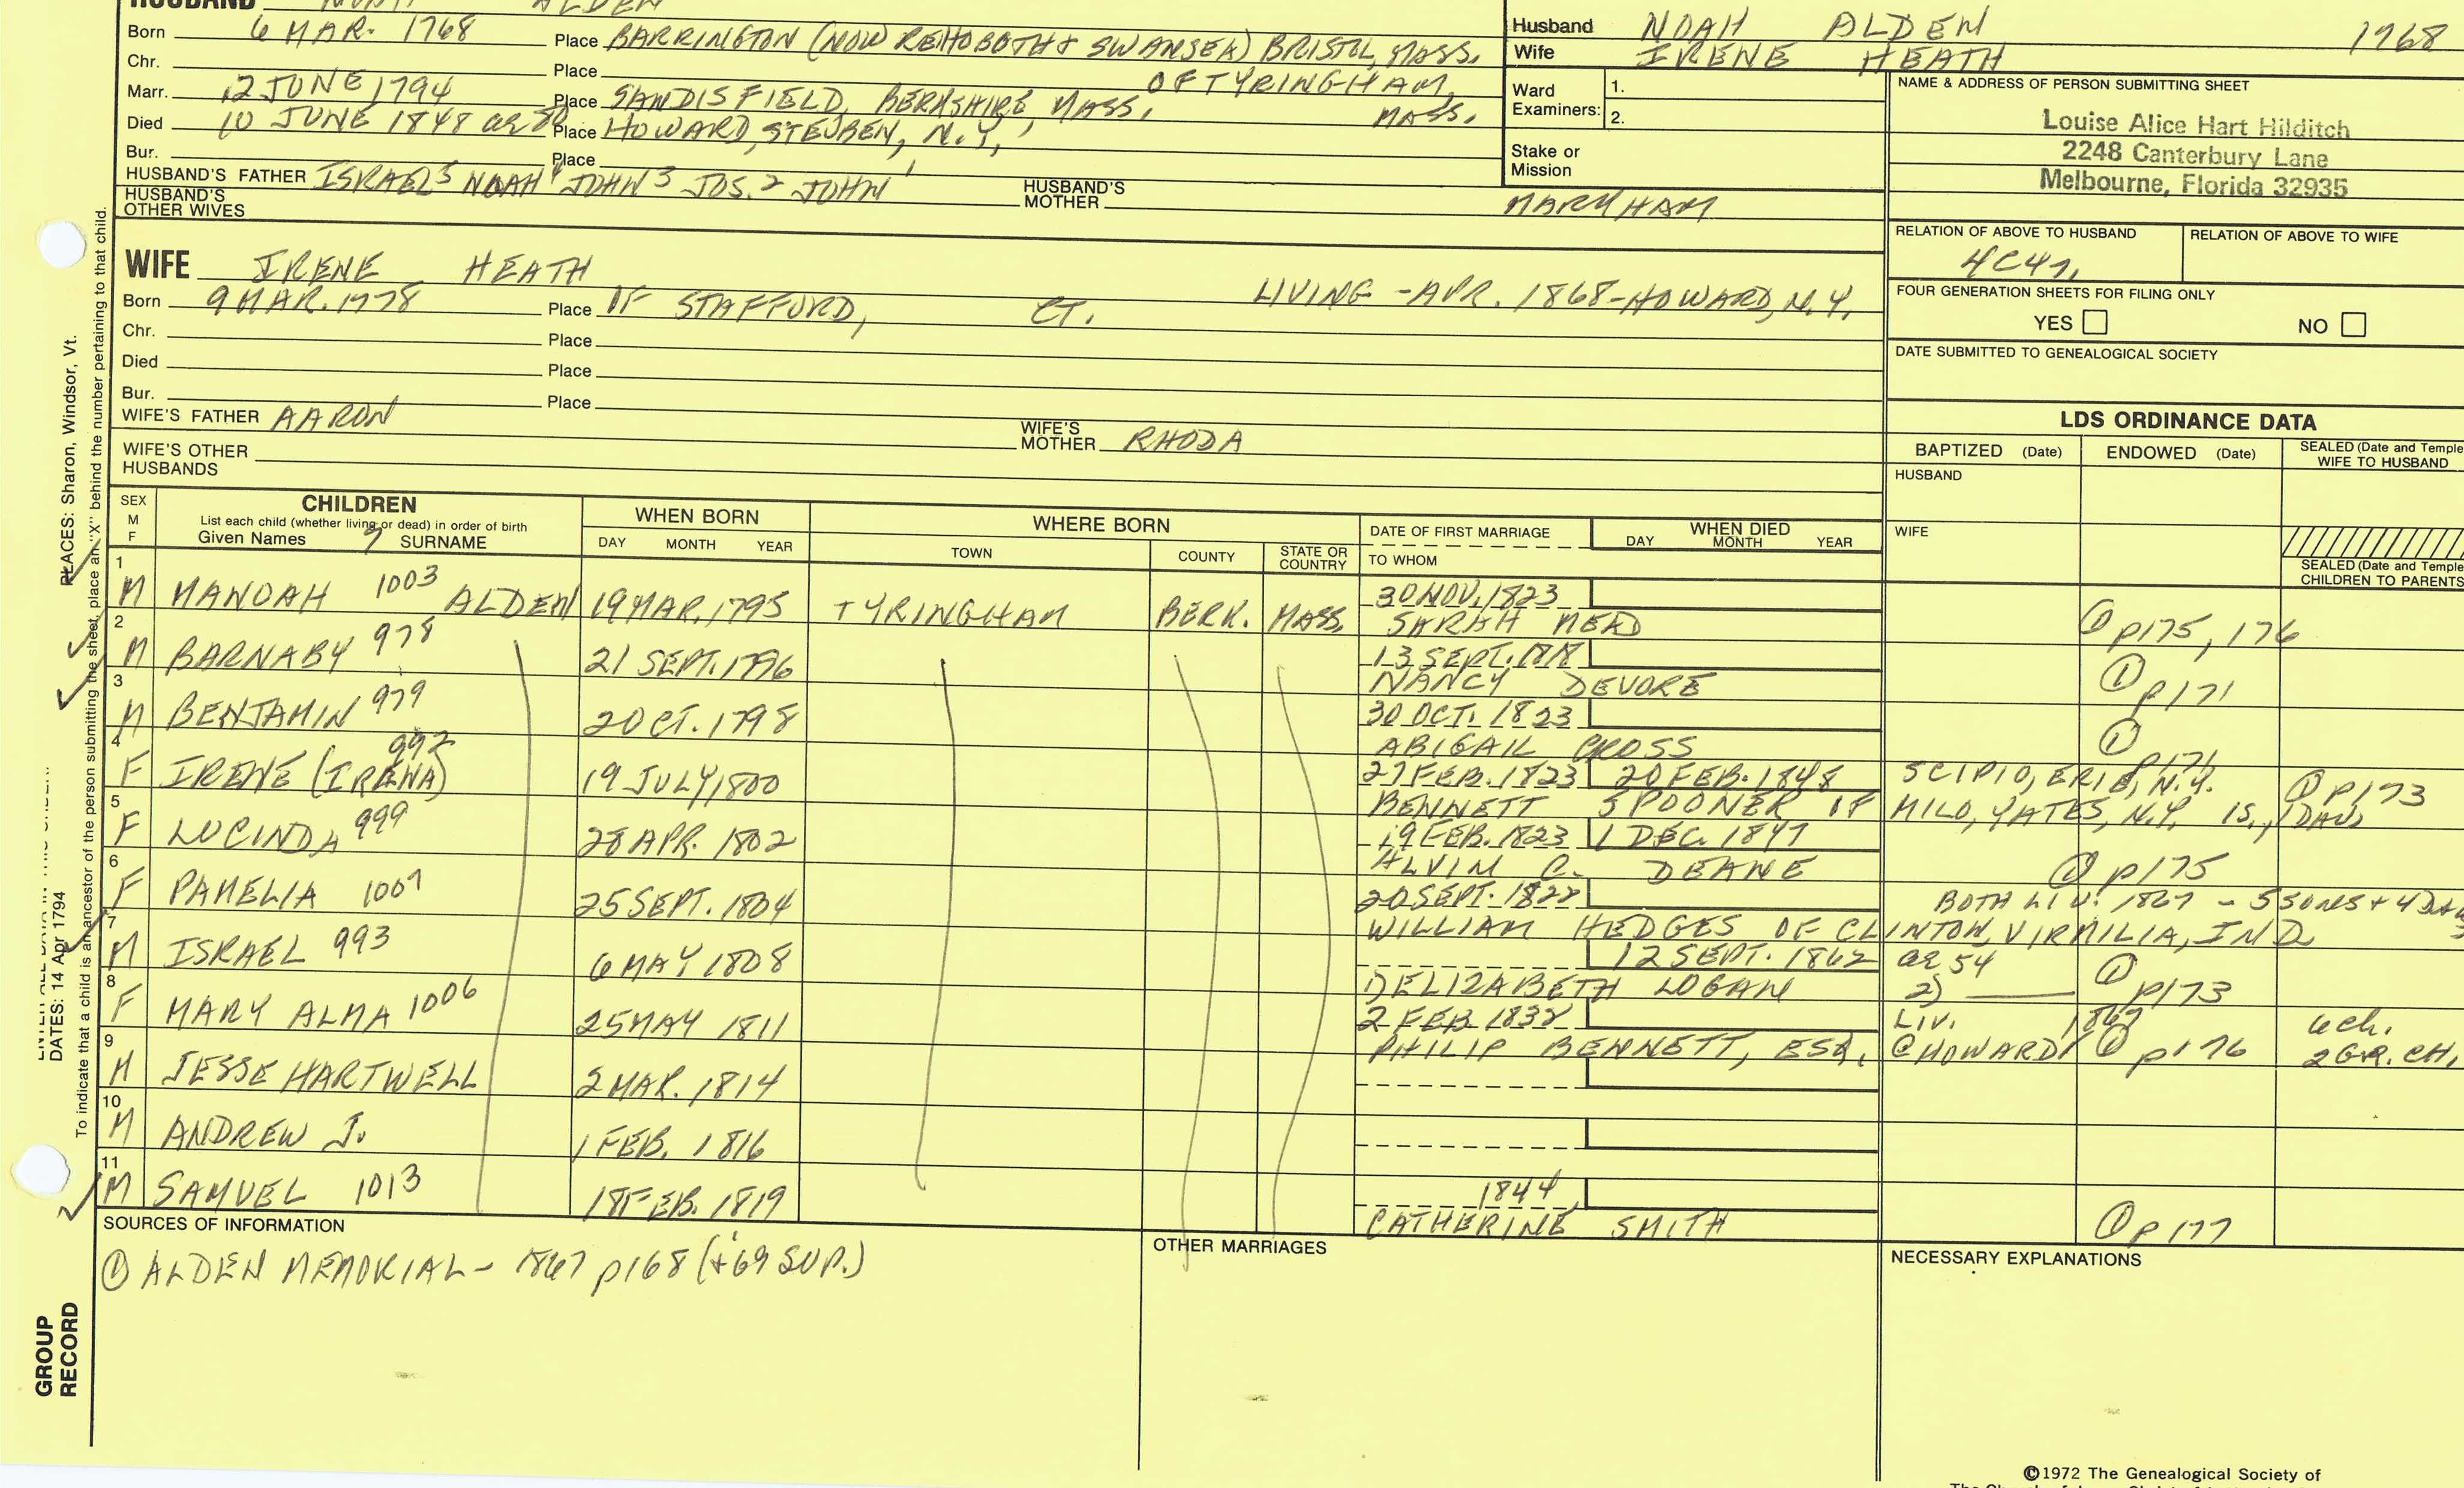 HUSBAND NOAH ALDEN
Born 6 MAR. 1768 Place BARRINGTON (NOW REHOBOTH & SWANSEA) BRISTOL, MASS.
Chr. Place OF TYRINGHAM, MASS.
Marr. 12 JUNE 1794 Place SANDISFIELD, BERKSHIRE, MASS.
Died 10 JUNE 1848 ae 80 Place HOWARD, STEUBEN, N.Y.
Bur. Place
HUSBAND'S FATHER ISRAEL5 NOAH4 JOHN3 JOS.2 JOHN1 HUSBAND'S MOTHER MARKHAM
HUSBAND'S OTHER WIVES
Husband NOAH ALDEN 1768
Wife IRENE HEATH
Ward Examiners: 1.
2.
Stake or Mission
NAME & ADDRESS OF PERSON SUBMITTING SHEET
Louise Alice Hart Hilditch
2248 Canterbury Lane
Melbourne, Florida 32935
RELATION OF ABOVE TO HUSBAND RELATION OF ABOVE TO WIFE
4C4r.
FOUR GENERATION SHEETS FOR FILING ONLY
YES NO
DATE SUBMITTED TO GENEALOGICAL SOCIETY
WIFE IRENE HEATH
Born 9 MAR. 1778 Place OF STAFFORD, CT. LIVING - APR. 1868 - HOWARD, N.Y.
Chr. Place
Died Place
Bur. Place
WIFE'S FATHER AARON WIFE'S MOTHER RHODA
WIFE'S OTHER HUSBANDS
LDS ORDINANCE DATA
BAPTIZED (Date) ENDOWED (Date) SEALED (Date and Temple
WIFE TO HUSBAND
HUSBAND
WIFE
SEALED (Date and Temple
CHILDREN TO PARENTS
SEX M F
CHILDREN
List each child (whether living or dead) in order of birth
Given Names SURNAME
WHEN BORN
DAY MONTH YEAR
WHERE BORN
TOWN COUNTY STATE OR COUNTRY
DATE OF FIRST MARRIAGE
TO WHOM
WHEN DIED
DAY MONTH YEAR
1 M MANOAH 1003 ALDEN 19 MAR. 1795 TYRINGHAM BERK. MASS. 30 NOV. 1823
SARAH MEAD ① p175, 176
2 M BARNABY 978 21 SEPT. 1796 13 SEPT. 1818
NANCY DEVORE ① p171
3 M BENJAMIN 979 2 OCT. 1798 30 OCT. 1823
ABIGAIL CROSS ① p171
4 F IRENE (IRENA) 992 19 JULY 1800 27 FEB. 1823 20 FEB. 1848 SCIPIO, ERIE, N.Y. ① p173
BENNETT SPOONER OF MILO, YATES, N.Y. 1S., 1DAU
5 F LUCINDA 999 28 APR. 1802 19 FEB. 1823 1 DEC. 1847
ALVIN C. DEANE ① p175
6 F PAMELIA 1001 25 SEPT. 1804 20 SEPT. 1822 BOTH LIV. 1867 - 5 SONS + 4 DAU
WILLIAM HEDGES OF CLINTON, VIRMILIA, IND
7 M ISRAEL 993 6 MAY 1808 12 SEPT. 1862 ae 54
1) ELIZABETH LOGAN 2) ① p173
8 F MARY ALMA 1006 25 MAY 1811 2 FEB 1832 LIV. 1867 6 ch.
PHILIP BENNETT, ESQ. @ HOWARD ① p176 2 GR. CH.
9 M JESSE HARTWELL 2 MAR. 1814
10 M ANDREW J. 1 FEB. 1816
11 M SAMUEL 1013 18 FEB. 1819 1844
CATHERINE SMITH ① p177
SOURCES OF INFORMATION
① ALDEN MEMORIAL - 1867 p168 (+69 SUP.)
OTHER MARRIAGES
NECESSARY EXPLANATIONS
©1972 The Genealogical Society of
PLACES: Sharon, Windsor, Vt.
To indicate that a child is an ancestor of the person submitting the sheet, place an "X" behind the number pertaining to that child.
DATES: 14 Apr 1794
GROUP
RECORD